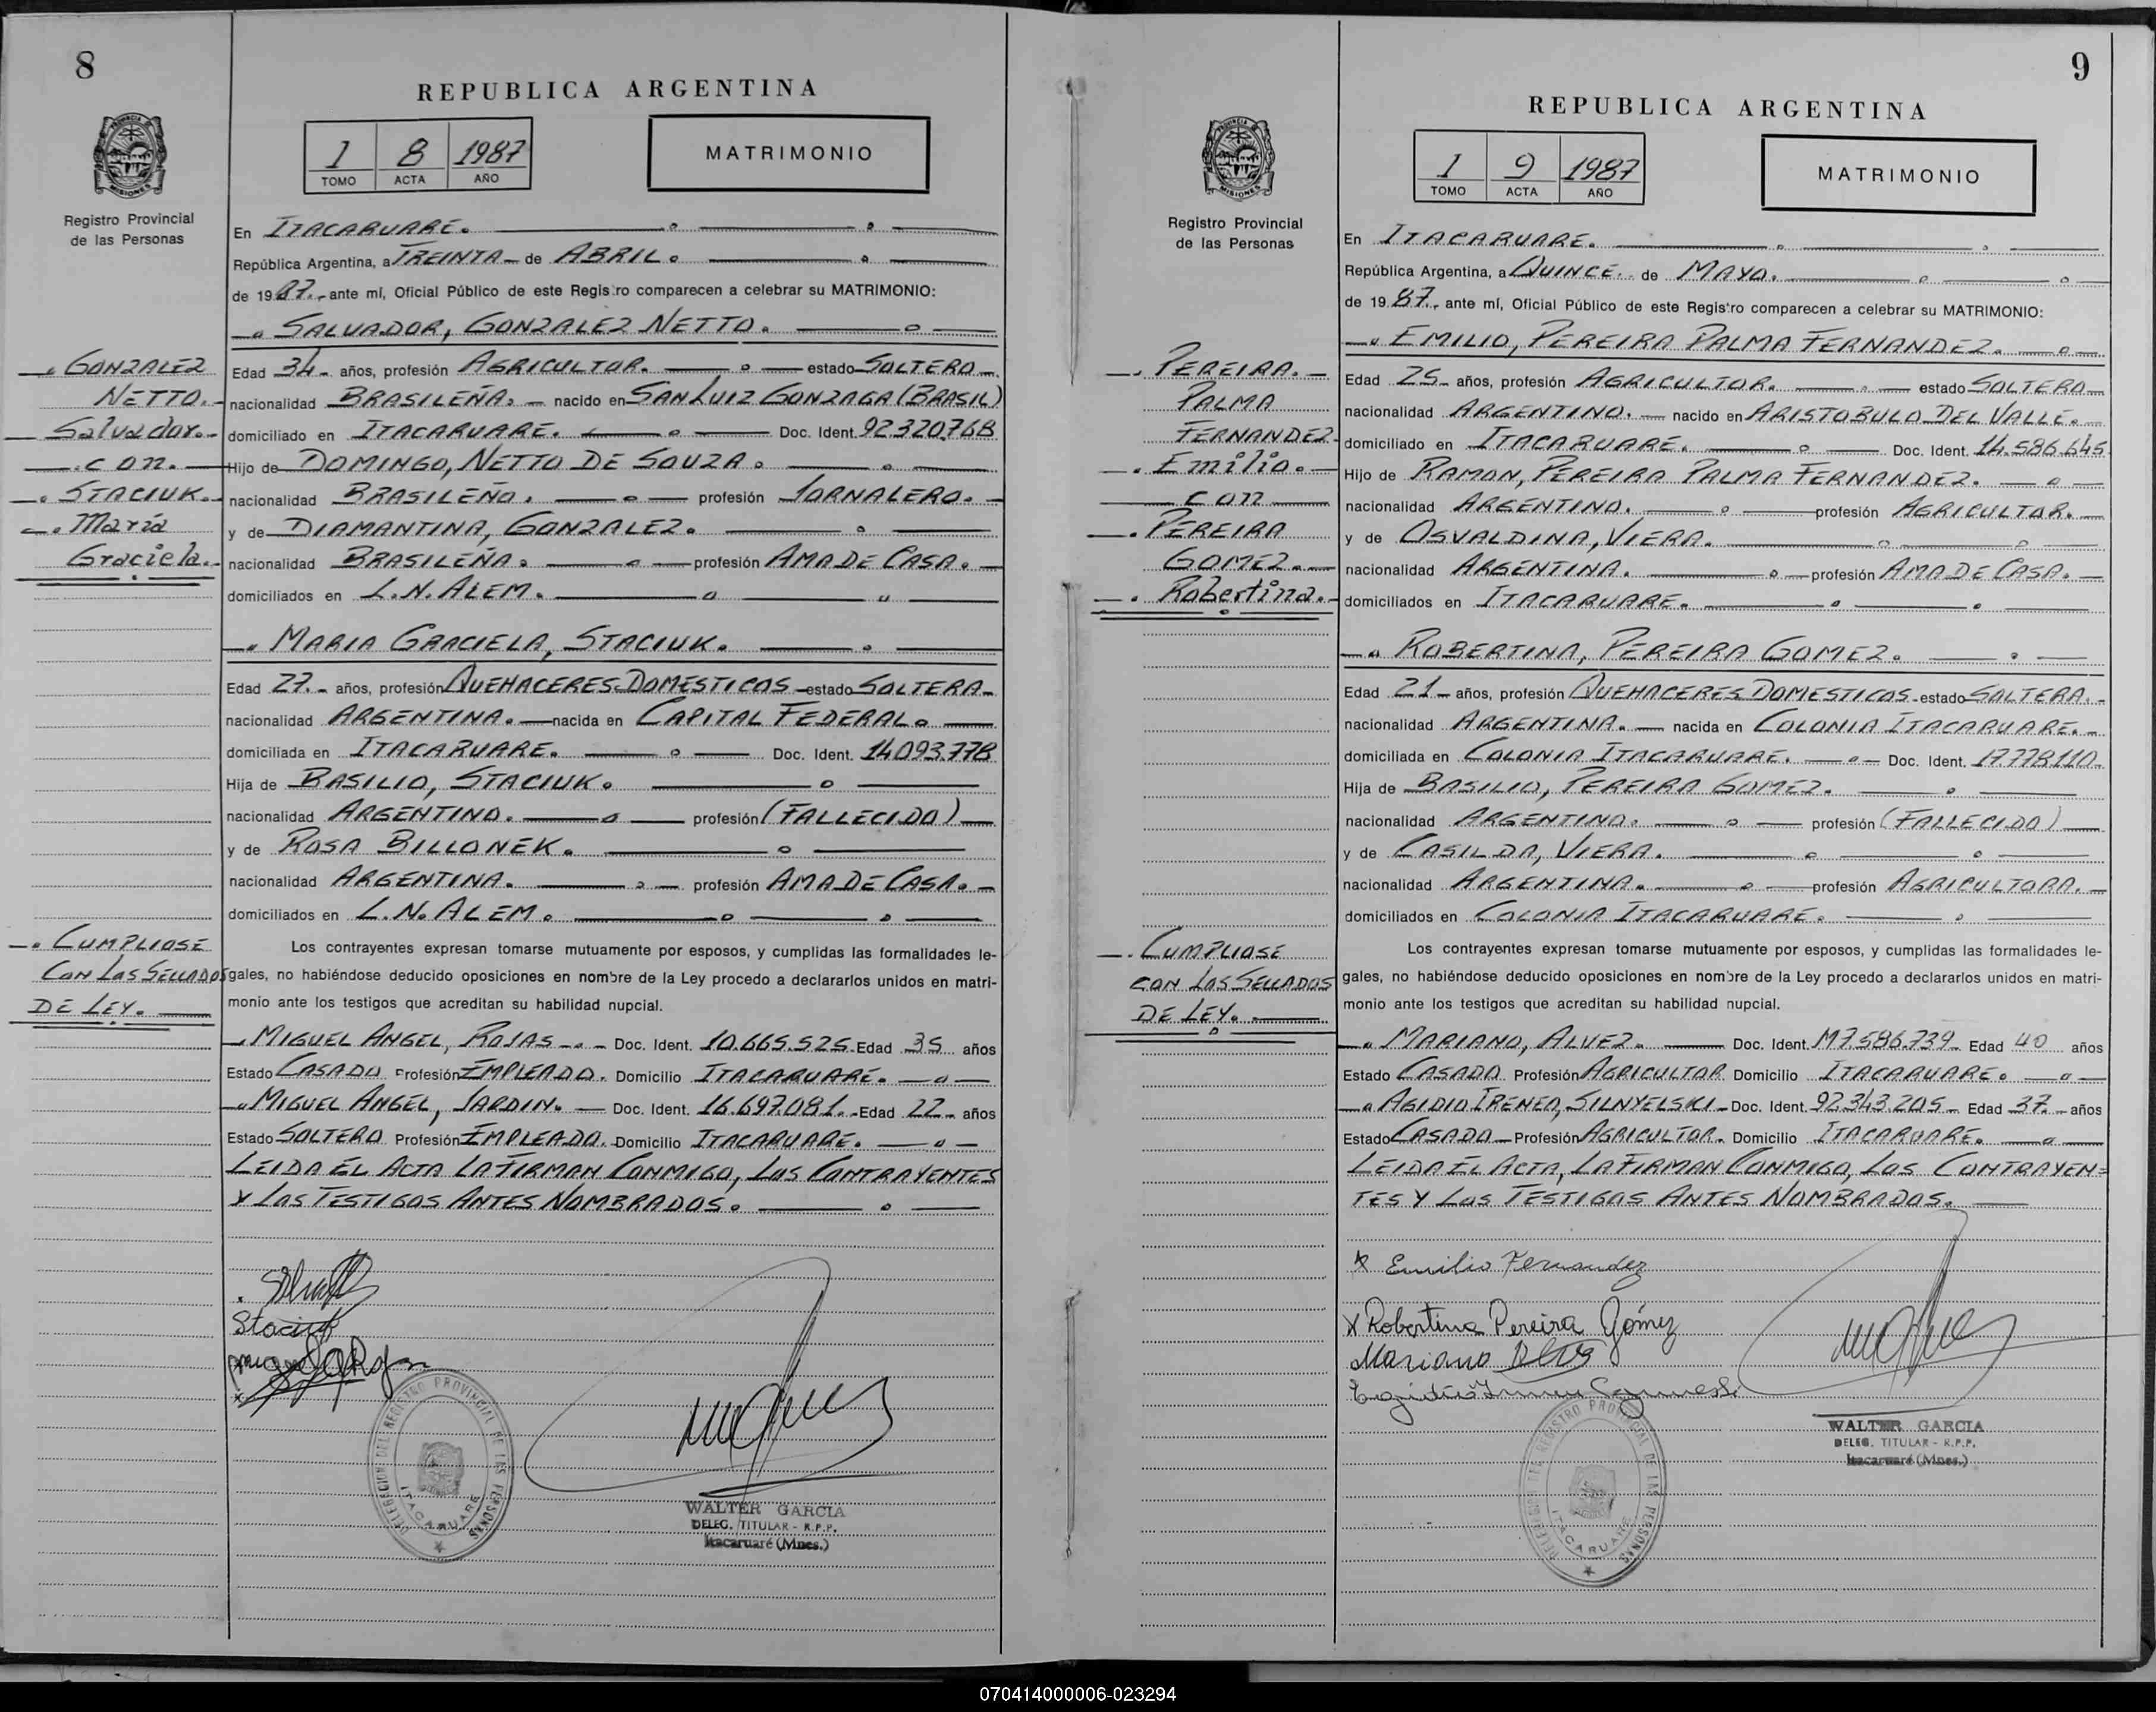 8
REPUBLICA ARGENTINA
1 8 1987
TOMO ACTA AÑO
MATRIMONIO
PROVINCIA DE MISIONES
Registro Provincial
de las Personas
En ITACARUARE.
República Argentina, a TREINTA - de ABRIL.
de 1987.- ante mí, Oficial Público de este Registro comparecen a celebrar su MATRIMONIO:
SALVADOR, GONZALEZ NETTO.
GONZALEZ
NETTO.-
Salvador.-
con.
STACIUK.-
María
Graciela.-
Edad 34- años, profesión AGRICULTOR. estado SOLTERO-.
nacionalidad BRASILEÑA. - nacido en SAN LUIZ GONZAGA (BRASIL)
domiciliado en ITACARUARE. Doc. Ident. 92320.768
Hijo de DOMINGO, NETTO DE SOUZA.
nacionalidad BRASILEÑO. profesión JORNALERO. -
y de DIAMANTINA, GONZALEZ.
nacionalidad BRASILEÑA. profesión AMA DE CASA. -
domiciliados en L.N. ALEM.
MARIA GRACIELA, STACIUK.
Edad 27.- años, profesión QUEHACERES DOMESTICOS - estado SOLTERA-
nacionalidad ARGENTINA. - nacida en CAPITAL FEDERAL.
domiciliada en ITACARUARE. Doc. Ident. 14.093.778
Hija de BASILIO, STACIUK.
nacionalidad ARGENTINO. profesión (FALLECIDO)
y de ROSA BILLONEK.
nacionalidad ARGENTINA. profesión AMA DE CASA. -
domiciliados en L.N. ALEM.
CUMPLIOSE
CON LOS SELLADOS
DE LEY.
Los contrayentes expresan tomarse mutuamente por esposos, y cumplidas las formalidades le-
gales, no habiéndose deducido oposiciones en nombre de la Ley procedo a declararlos unidos en matri-
monio ante los testigos que acreditan su habilidad nupcial.
MIGUEL ANGEL, ROJAS -.- Doc. Ident. 10.665.525- Edad 35 años
Estado CASADO Profesión EMPLEADO. Domicilio ITACARUARE.
MIGUEL ANGEL, JARDIN. - Doc. Ident. 16.697.081.- Edad 22- años
Estado SOLTERO Profesión EMPLEADO. Domicilio ITACARUARE.
LEIDA EL ACTA LA FIRMAN CONMIGO, LOS CONTRAYENTES
Y LOS TESTIGOS ANTES NOMBRADOS.
Staciuk
DELEGACION DEL REGISTRO PROVINCIAL DE LAS PERSONAS
ITACARUARE
WALTER GARCIA
DELEG. TITULAR - R.P.P.
Itacaruaré (Mnes.)
9
REPUBLICA ARGENTINA
1 9 1987
TOMO ACTA AÑO
MATRIMONIO
PROVINCIA DE MISIONES
Registro Provincial
de las Personas
En ITACARUARE.
República Argentina, a QUINCE.- de MAYO.
de 1987.- ante mí, Oficial Público de este Registro comparecen a celebrar su MATRIMONIO:
EMILIO, PEREIRA PALMA FERNANDEZ.
PEREIRA. -
PALMA
FERNANDEZ-
Emilio. -
con
PEREIRA
GOMEZ.-
Robertina.-
Edad 25- años, profesión AGRICULTOR. estado SOLTERO-
nacionalidad ARGENTINO. - nacido en ARISTOBULO DEL VALLE.
domiciliado en ITACARUARE. Doc. Ident. 14.586.645
Hijo de RAMON, PEREIRA PALMA FERNANDEZ.
nacionalidad ARGENTINO. profesión AGRICULTOR. -
y de OSVALDINA, VIERA.
nacionalidad ARGENTINA. profesión AMA DE CASA. -
domiciliados en ITACARUARE.
ROBERTINA, PEREIRA GOMEZ.
Edad 21- años, profesión QUEHACERES DOMESTICOS - estado SOLTERA.-
nacionalidad ARGENTINA. - nacida en COLONIA ITACARUARE. -
domiciliada en COLONIA ITACARUARE. Doc. Ident. 17.778.110.
Hija de BASILIO, PEREIRA GOMEZ.
nacionalidad ARGENTINO. profesión (FALLECIDO)
y de CASILDA, VIERA.
nacionalidad ARGENTINA. profesión AGRICULTORA. -
domiciliados en COLONIA ITACARUARE.
CUMPLIOSE
CON LOS SELLADOS
DE LEY.
Los contrayentes expresan tomarse mutuamente por esposos, y cumplidas las formalidades le-
gales, no habiéndose deducido oposiciones en nombre de la Ley procedo a declararlos unidos en matri-
monio ante los testigos que acreditan su habilidad nupcial.
MARIANO, ALVEZ. Doc. Ident. M7.586.739- Edad 40 años
Estado CASADO Profesión AGRICULTOR Domicilio ITACARUARE.
AGIDIO IRENEO, SILNYELSKI - Doc. Ident. 92.343.205- Edad 37- años
Estado CASADO - Profesión AGRICULTOR. Domicilio ITACARUARE.
LEIDA EL ACTA, LA FIRMAN CONMIGO, LOS CONTRAYEN=
TES Y LOS TESTIGOS ANTES NOMBRADOS.
x Emilio Fernandez
x Robertina Pereira Gómez
Mariano
DELEGACION DEL REGISTRO PROVINCIAL DE LAS PERSONAS
ITACARUARE
WALTER GARCIA
DELEG. TITULAR - R.P.P.
Itacaruaré (Mnes.)
070414000006-023294